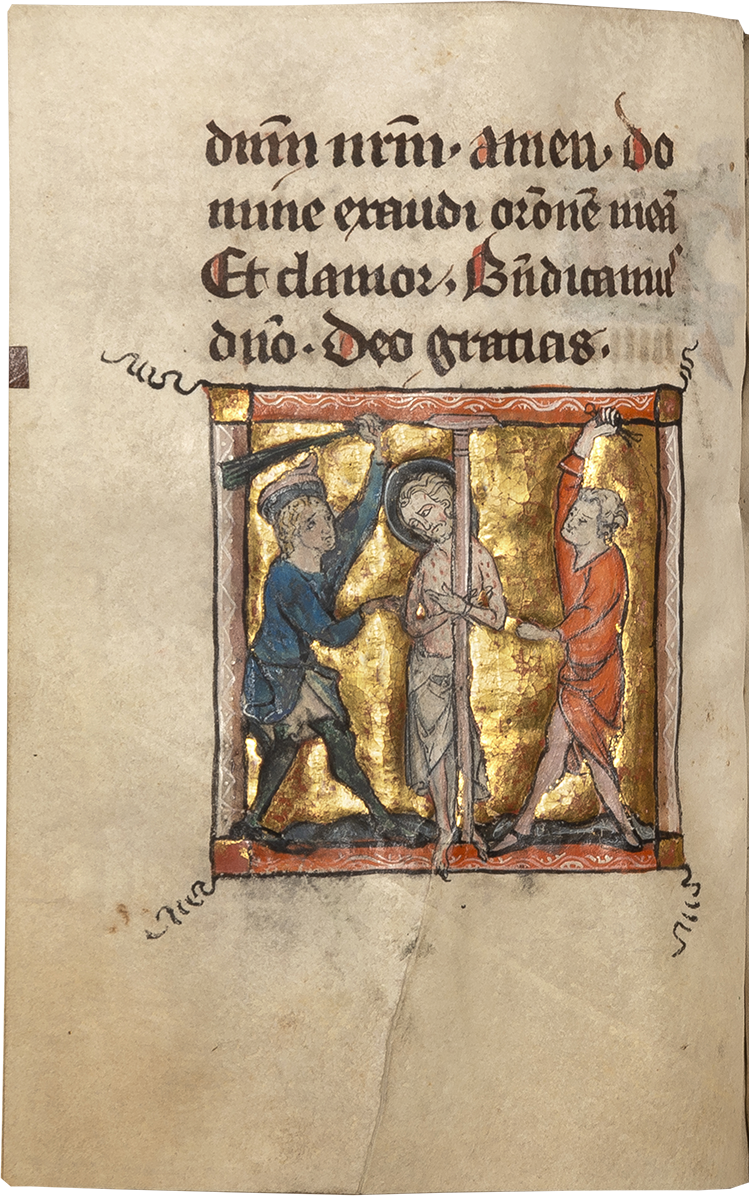 dn̄m nr̄m· amen· do
mine exaudi or̄onē meā
Et clamor· Bn̄dicamus
dn̄o· Deo gratias·